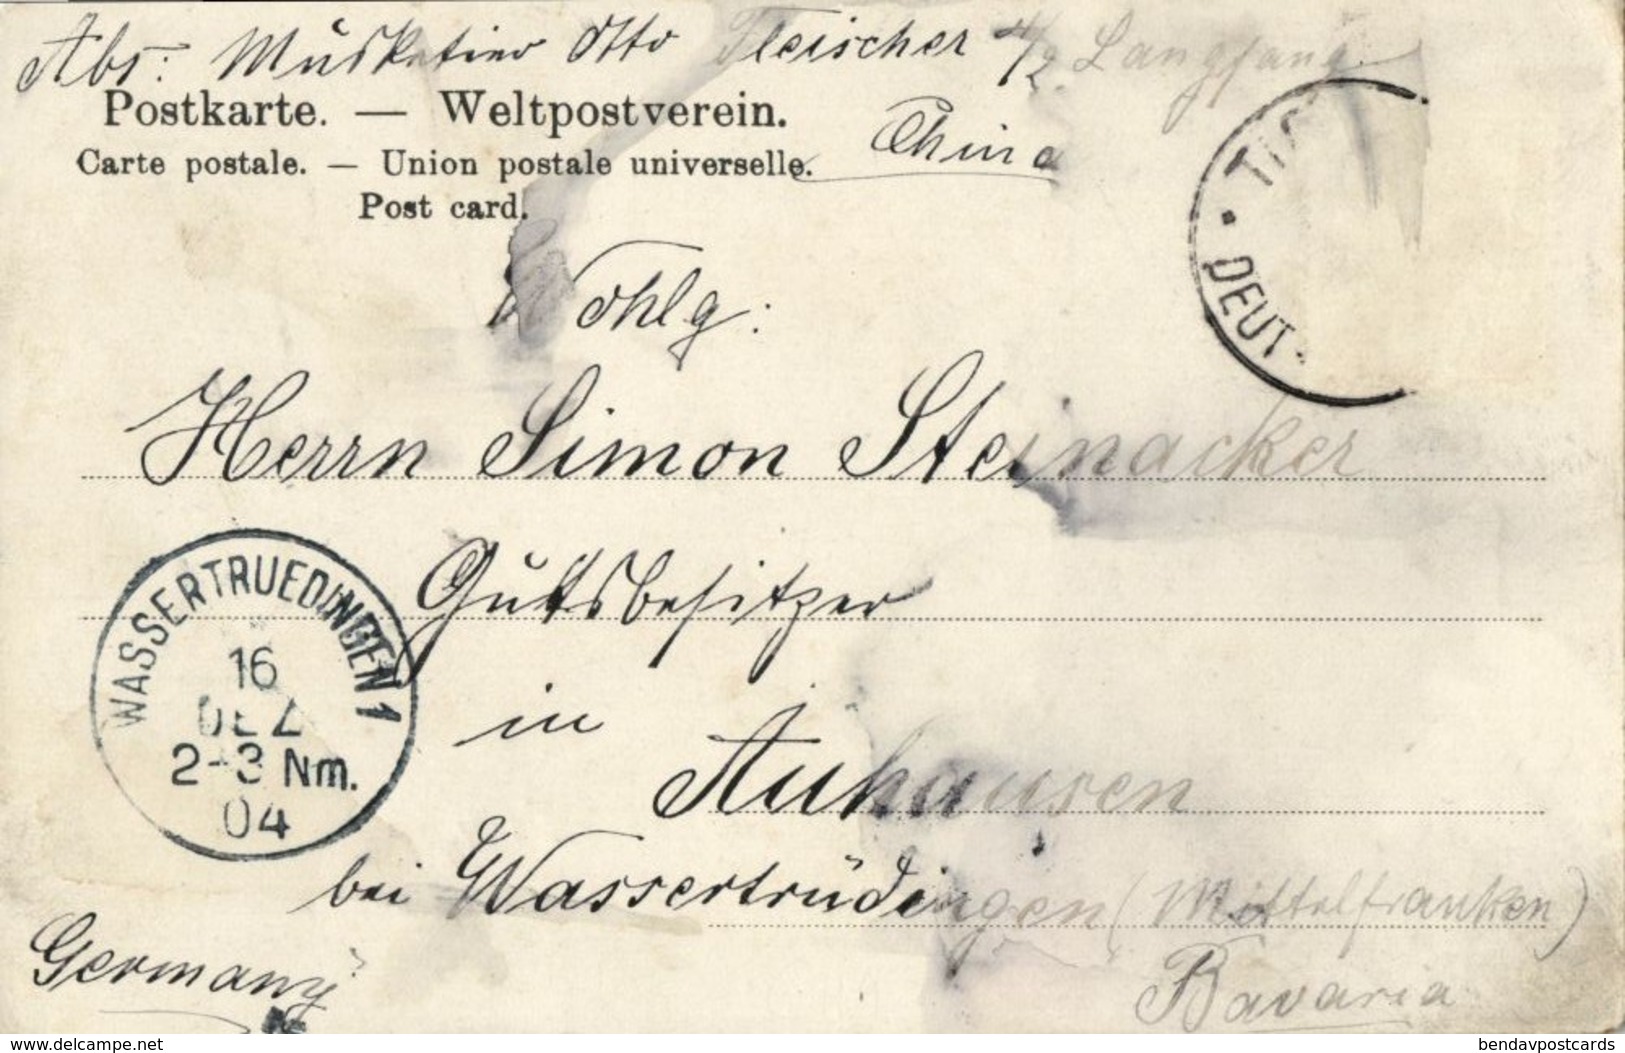 Abs: Musketier Otto Fleischer Langfang
Postkarte. — Weltpostverein.
China
Carte postale. — Union postale universelle.
Post card.
DEUT
Wohlg:
Herrn Simon Steinacker
Gutsbesitzer
WASSERTRUEDINGEN 1
16
DEZ
2-3 Nm.
04
in
Auhausen
bei Wassertrüdingen (Mittelfranken)
Germany
Bavaria
www.delcampe.net
bendavpostcards